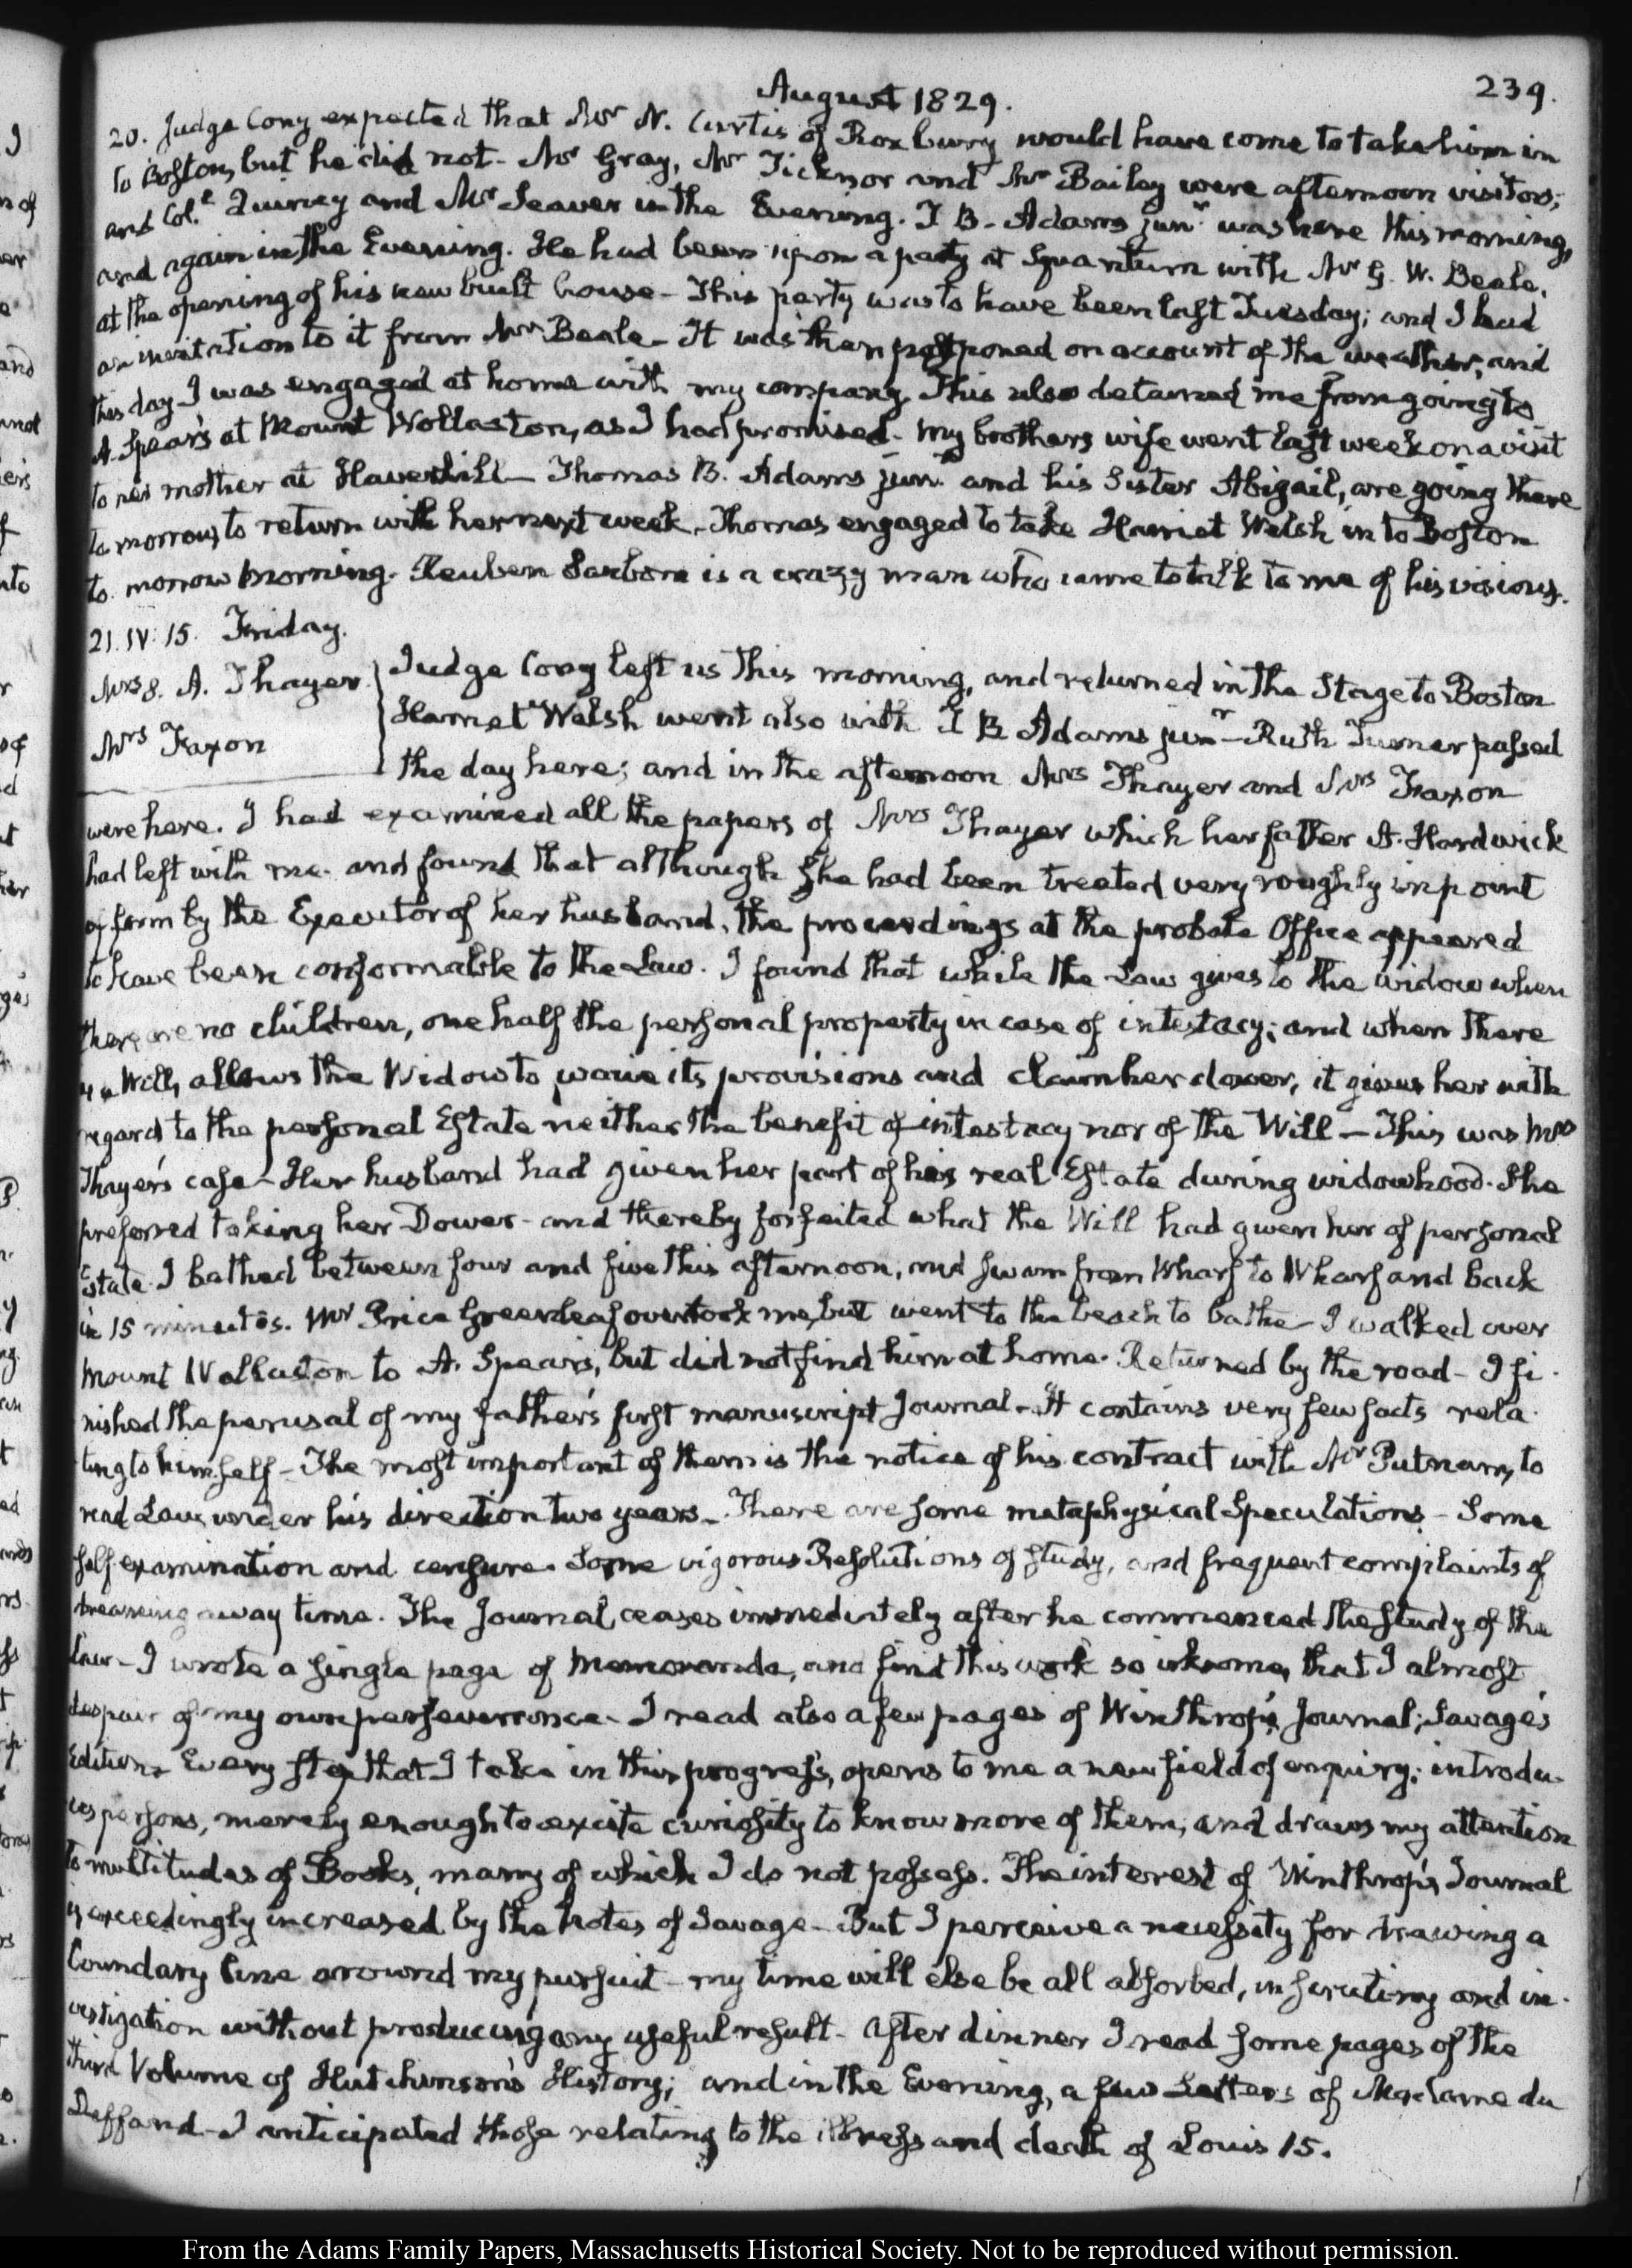 239.
August 1829.
20. Judge Cony expected that Mr N. Curtis of Roxbury would have come to take him in
to Boston, but he did not. Mr Gray, Mr Ticknor and Mr Bailey were afternoon visitors;
and Coll. Quincy and Mr Seaver in the Evening. T B. Adams junr. was here this morning,
and again in the Evening. He had been upon a party at Squantum with Mr G. W. Beale,
at the opening of his new built house - This party was to have been last Tuesday; and I had
an invitation to it from Mr Beale - It was then postponed on account of the weather, and
this day I was engaged at home with my company. This also detained me from going to
A. Spear's at Mount Wollaston, as I had promised - My brothers wife went last week on a visit
to her mother at Haverhill - Thomas B. Adams junr. and his Sister Abigail, are going there
to morrow, to return with her next week. Thomas engaged to take Harriet Welsh in to Boston
to morrow morning. Reuben Sanborn is a crazy man who came to talk to me of his visions.
21. IV: 15. Friday.
Mrs S. A. Thayer
Mrs Faxon
Judge Cony left us this morning, and returned in the Stage to Boston
Harriet Welsh went also with T B Adams junr - Ruth Turner passed
the day here; and in the afternoon Mrs Thayer and Mrs Faxon
were here. I had examined all the papers of Mrs Thayer which her father A. Hardwick
had left with me. and found that although she had been treated very roughly in point
of form by the Executor of her husband, the proceedings at the probate Office appeared
to have been conformable to the Law. I found that while the Law gives to the widow when
there are no children, one half the personal property in case of intestacy; and when there
is a Will, allows the Widow to waive its provisions and claim her dower, it gives her with
regard to the personal Estate neither the benefit of intestacy nor of the Will - This was Mrs
Thayer's case - Her husband had given her part of his real Estate during widowhood. She
preferred taking her Dower - and thereby forfeited what the Will had given her of personal
Estate. I bathed between four and five this afternoon, and swam from Wharf to Wharf and back
in 15 minutes. Mr Price Greenleaf overtook me, but went to the beach to bathe - I walked over
Mount Wollaston to A. Spear's, but did not find him at home. Returned by the road - I fi-
nished the perusal of my father's first manuscript Journal - It contains very few facts rela-
ting to himself - The most important of them is the notice of his contract with Mr Putnam, to
read Law under his direction two years - There are some metaphysical Speculations - Some
self examination and censure. Some vigorous Resolutions of study, and frequent complaints of
dreaming away time. The Journal ceases immediately after he commenced the study of the
Law - I wrote a single page of Memoranda, and find this work so irksome, that I almost
despair of my own perseverance - I read also a few pages of Winthrop's Journal; Savage's
Edition. Every step that I take in this progress, opens to me a new field of enquiry; introdu-
ces persons, merely enough to excite curiosity to know more of them, and draws my attention
to multitudes of Books, many of which I do not possess. The interest of Winthrop's Journal
is exceedingly increased by the Notes of Savage - But I perceive a necessity for drawing a
boundary line around my pursuit - my time will else be all absorbed, in scrutiny and in-
vestigation without producing any useful result - After dinner I read some pages of the
third Volume of Hutchinson's History; and in the Evening, a few Letters of Madame du
Deffand - I anticipated those relating to the illness and death of Louis 15.
From the Adams Family Papers, Massachusetts Historical Society. Not to be reproduced without permission.